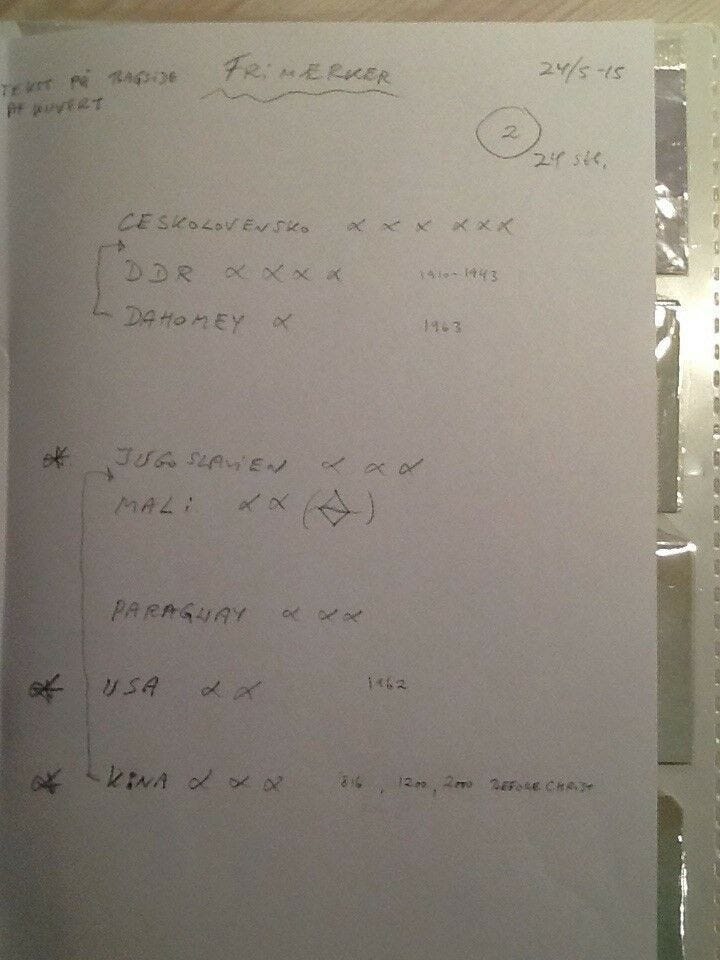 TEKST PÅ BAGSIDE FRIMÆRKER 24/5-15
AF KUVERT
2
24 stk.
CESKOLOVENSKO α α α α α α
DDR α α α α 1910-1943
DAHOMEY α 1963
JUGOSLAVIEN α α α
MALI α α ( )
PARAGUAY α α α
USA α α 1962
KINA α α α 816, 1200, 2000 BEFORE CHRIST